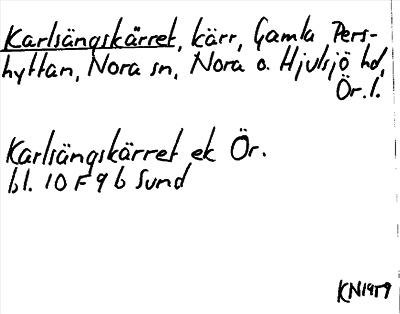 Karlsängskärret, kärr, Gamla Pers-
hyttan, Nora sn, Nora o. Hjulsjö hd,
Ör. l.
Karlsängskärret ek Ör.
bl. 10 F 9 b Sund
KN1959